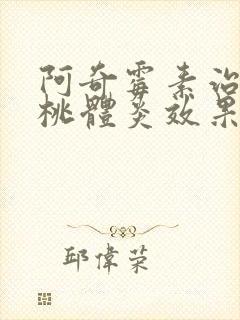 阿奇霉素治
桃體炎效果
邱偉荣